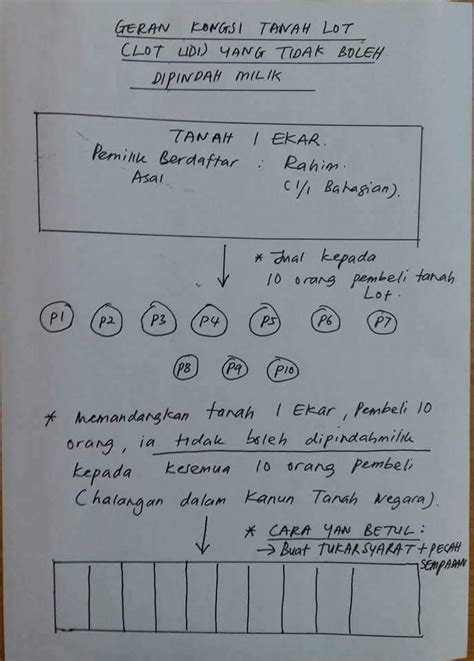 GERAN KONGSI TANAH LOT
(LOT LIDI) YANG TIDAK BOLEH
DIPINDAH MILIK
TANAH 1 EKAR.
Pemilik Berdaftar : Rahim.
Asal (1/1 Bahagian).
* Jual kepada
10 orang pembeli tanah
Lot.
P1 P2 P3 P4 P5 P6 P7
P8 P9 P10
* Memandangkan tanah 1 EKAR, Pembeli 10
orang, ia tidak boleh dipindahmilik
kepada kesemua 10 orang pembeli
(halangan dalam Kanun Tanah Negara).
* CARA YAN BETUL:
→ Buat TUKARSYARAT + PECAH
SEMPADAN